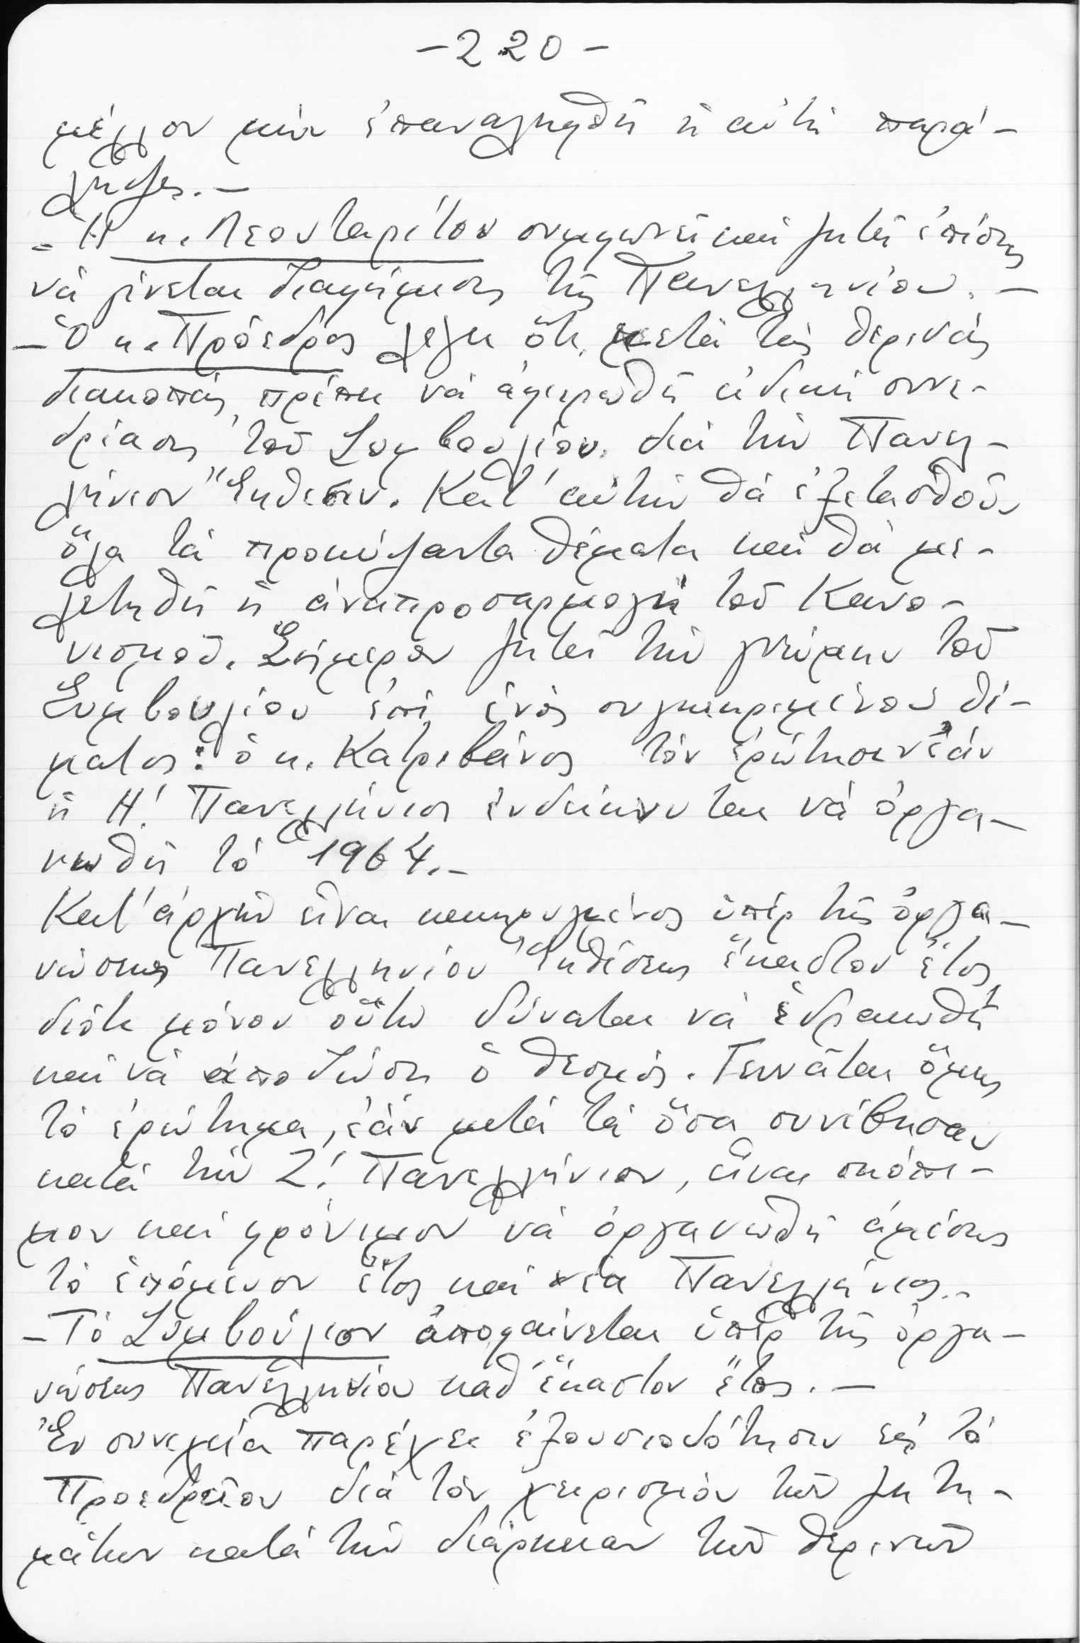 -220-
μέλλον μὴν ἐπαναληφθῆ ἡ αὐτὴ παρά-
λειψις.-
- Ἡ κ. Λεονταρίτου συμφωνεῖ καὶ ζητεῖ ἐπίσης
νὰ γίνεται διαφήμισης τῆς Πανελληνίου.-
- Ὁ κ. Πρόεδρος λέγει ὅτι μετὰ τὰς θερινὰς
διακοπάς, πρέπει νὰ ἀφιερωθῆ εἰδικὴ συνε-
δρίασις τοῦ Συμβουλίου διὰ τὴν Πανελ-
λήνιον Ἔκθεσιν. Κατ' αὐτὴν θὰ ἐξετασθοῦν
ὅλα τὰ προκύψαντα θέματα καὶ θὰ με-
λετηθῆ ἡ ἀναπροσαρμογὴ τοῦ Κανο-
νισμοῦ. Σήμερον ζητεῖ τὴν γνώμην τοῦ
Συμβουλίου ἐπὶ ἑνὸς συγκεκριμένου θέ-
ματος: ὁ κ. Κατριβάνος τὸν ἐρώτησεν ἐὰν
ἡ Η! Πανελλήνιος ἐνδείκνυται νὰ ὀργα-
νωθῆ τὸ 1964.-
Κατ' ἀρχὴν εἶναι κεκηρυγμένος ὑπὲρ τῆς ὀργα-
νώσεως Πανελληνίου Ἐκθέσεως ἕκαστον ἔτος
διότι μόνον οὕτω δύναται νὰ ἑδραιωθῆ
καὶ νὰ ἀποδώση ὁ θεσμός. Γεννᾶται ὅμως
τὸ ἐρώτημα, ἐὰν μετὰ τὰ ὅσα συνέβησαν
κατὰ τὴν Ζ! Πανελλήνιον, εἶναι σκόπι-
μον καὶ φρόνιμον νὰ ὀργανωθῆ ἀμέσως
τὸ ἑπόμενον ἔτος καὶ νέα Πανελλήνιος.-
- Τὸ Συμβούλιον ἀποφαίνεται ὑπὲρ τῆς ὀργα-
νώσεως Πανελληνίου καθ' ἕκαστον ἔτος.-
Ἐν συνεχεία παρέχει ἐξουσιοδότησιν εἰς τὸ
Προεδρεῖον διὰ τὸν χειρισμὸν τῶν ζητη-
μάτων κατὰ τὴν διάρκειαν τῶν θερινῶν